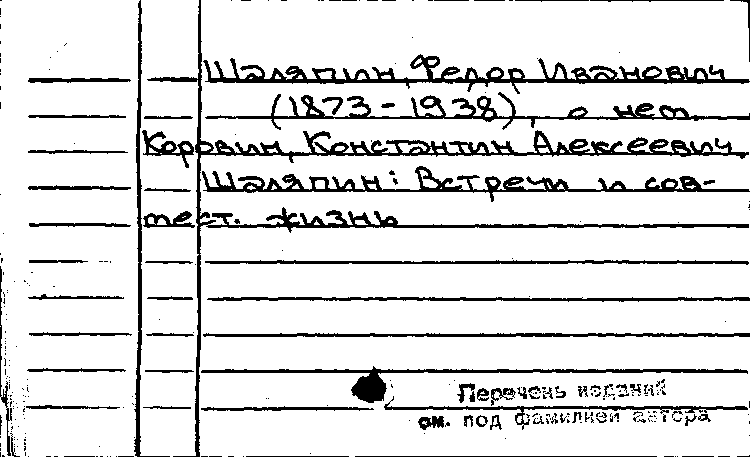 Шаляпин, Федор Иванович
(1873-1938), о нем.
Коровин, Константин Алексеевич.
Шаляпин: Встречи и сов-
мест. жизнь
Перечень изданий
см. под фамилией автора